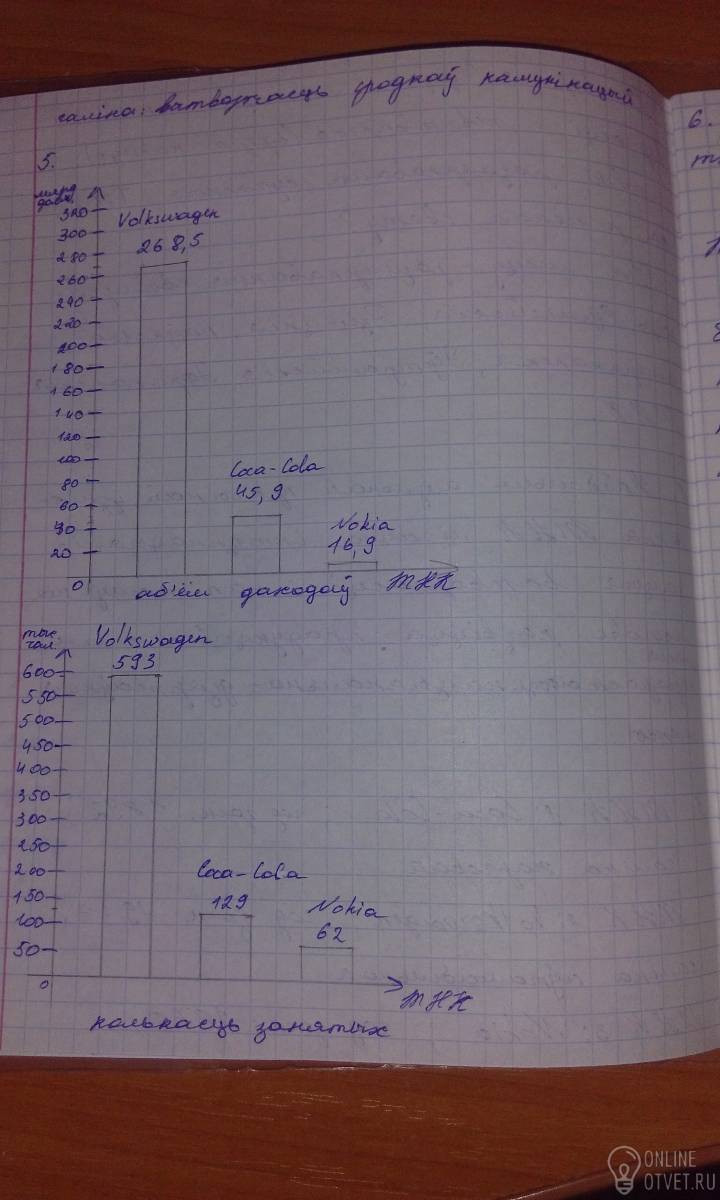 галіна: вытворчасць сродкаў камунікацый
5.
6.
млрд
дол.
320
300
280
260
240
220
200
180
160
140
120
100
80
60
40
20
0
Volkswagen
268,5
Coca-Cola
45,9
Nokia
16,9
аб'ём даходаў ТНК
тыс.
чал.
600
550
500
450
400
350
300
250
200
150
100
50
0
Volkswagen
593
Coca-Cola
129
Nokia
62
ТНК
колькасць занятых
ONLINE
OTVET.RU